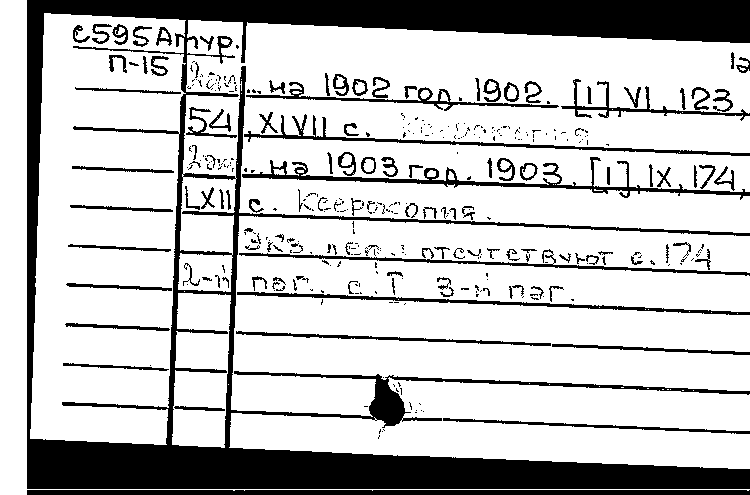 с595Амур.
п-15 2эт ... на 1902 год. 1902. [1], VI, 123,
54, XIVII с. Ксерокопия.
2эт ... на 1903 год. 1903. [1], IX, 174,
LXII с. Ксерокопия.
Экз. деф.: отсутствуют с. 174
2-й паг., с. I 3-й паг.